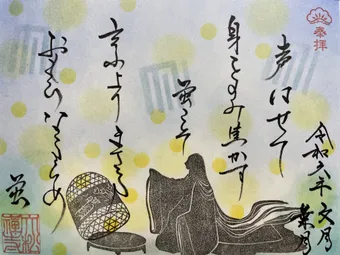 奉拝
令和六年文月
葉月
声はせて
身をのみ焦かす
螢こそ
言ふよりまさる
おもひなるらめ
螢